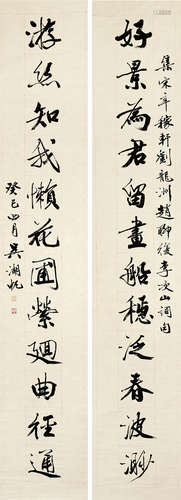 好景為君留畫船穩泛春波渺
集宋辛稼軒劉龍洲趙聊復李次山詞句
游絲知我懶花圃縈迴曲徑通
癸巳四月吳湖帆